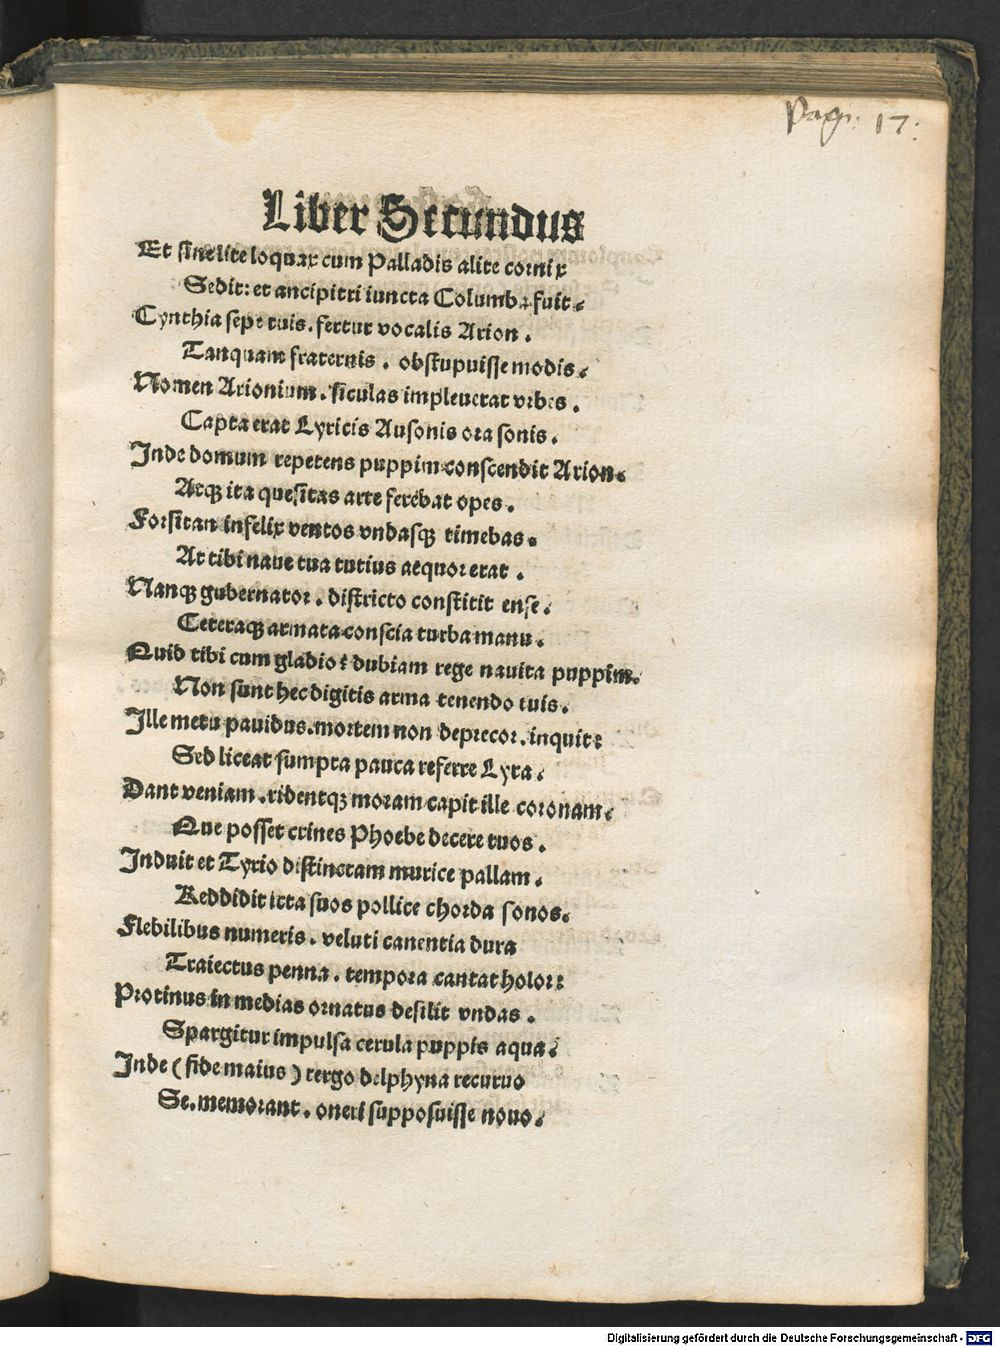 Pag. 17.
Liber Secundus
Et sine lite loquax cum Palladis alite cornix
Sedit: et ancipitri iuncta Columba fuit.
Cynthia sepe tuis. fertur vocalis Arion.
Tanquam fraternis. obstupuisse modis.
Nomen Arionium. siculas impleuerat vrbes.
Capta erat Lyricis Ausonis ora sonis.
Inde domum repetens puppim conscendit Arion.
Atqꝫ ita quesitas arte ferebat opes.
Forsitan infelix ventos vndasqꝫ timebas.
At tibi naue tua tutius aequor erat.
Nanqꝫ gubernator. districto constitit ense.
Ceteraqꝫ armata conscia turba manu.
Quid tibi cum gladio? dubiam rege nauita puppim.
Non sunt hec digitis arma tenendo tuis.
Ille metu pauidus. mortem non deprecor. inquit:
Sed liceat sumpta pauca referre Lyra.
Dant veniam. ridentqꝫ moram capit ille coronam.
Que posset crines Phoebe decere tuos.
Induit et Tyrio distinctam murice pallam.
Reddidit icta suos pollice chorda sonos.
Flebilibus numeris. veluti canentia dura
Traiectus penna. tempora cantat holor:
Protinus in medias ornatus desilit vndas.
Spargitur impulsa cerula puppis aqua.
Inde (fide maius) tergo delphyna recuruo
Se. memorant. oneri supposuisse nouo.
Digitalisierung gefördert durch die Deutsche Forschungsgemeinschaft - DFG